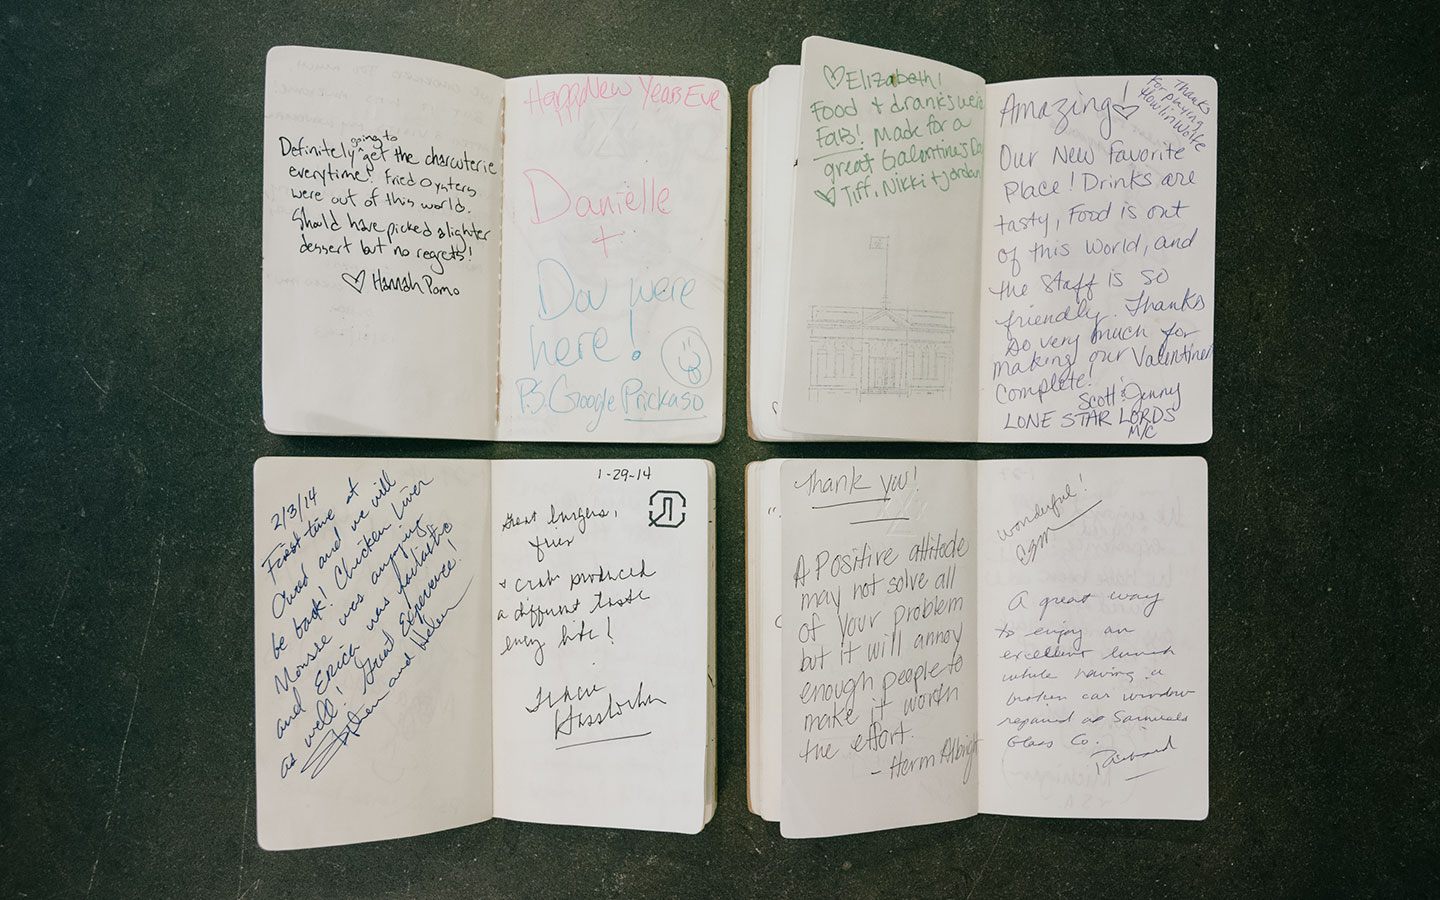 Definitely going to get the charcuterie
everytime! Fried Oysters
were out of this world.
Should have picked a lighter
dessert but no regrets!
♡ Hannah Pomo
Happy New Years Eve
Danielle
+
Dov were
here!
P.S. Google Prickaso
♡Elizabeth!
Food + dranks were
FAB! Made for a
great Galentine's Day
♡ Tiff, Nikki + Jordan
Amazing!♡
Thanks
For playing
Howlin Wolfe
Our New Favorite
Place! Drinks are
tasty, Food is out
of this world, and
the Staff is so
friendly. Thanks
So very much for
making our Valentines
Complete!
Scott & Jenny
LONE STAR LORDS
M/C
2/3/14
First time at
and we will
be back! Chicken Liver
Mousse was amazing
and Erica was fantastic
as well! Great Experience!
Stephen and Helen
1-29-14
Great burgers,
fries
+ crab produced
a different taste
every bite!
Thank you!
A Positive attitude
may not solve all
of your problem
but it will annoy
enough people to
make it worth
the effort.
- Herm Albright
wonderful!
A great way
to enjoy an
excellent lunch
while having a
broken car window
repaired at Samuels
Glass Co.